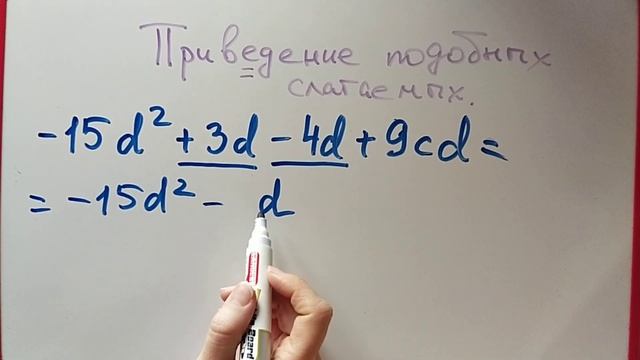 Приведение подобных
слагаемых.
-15d² + 3d - 4d + 9cd =
= -15d² - d
Board